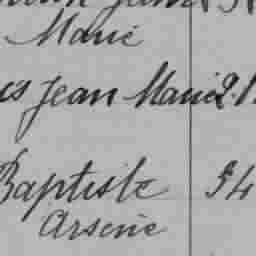 Marie
Jean Marie 2.
Baptiste 54
Arsène